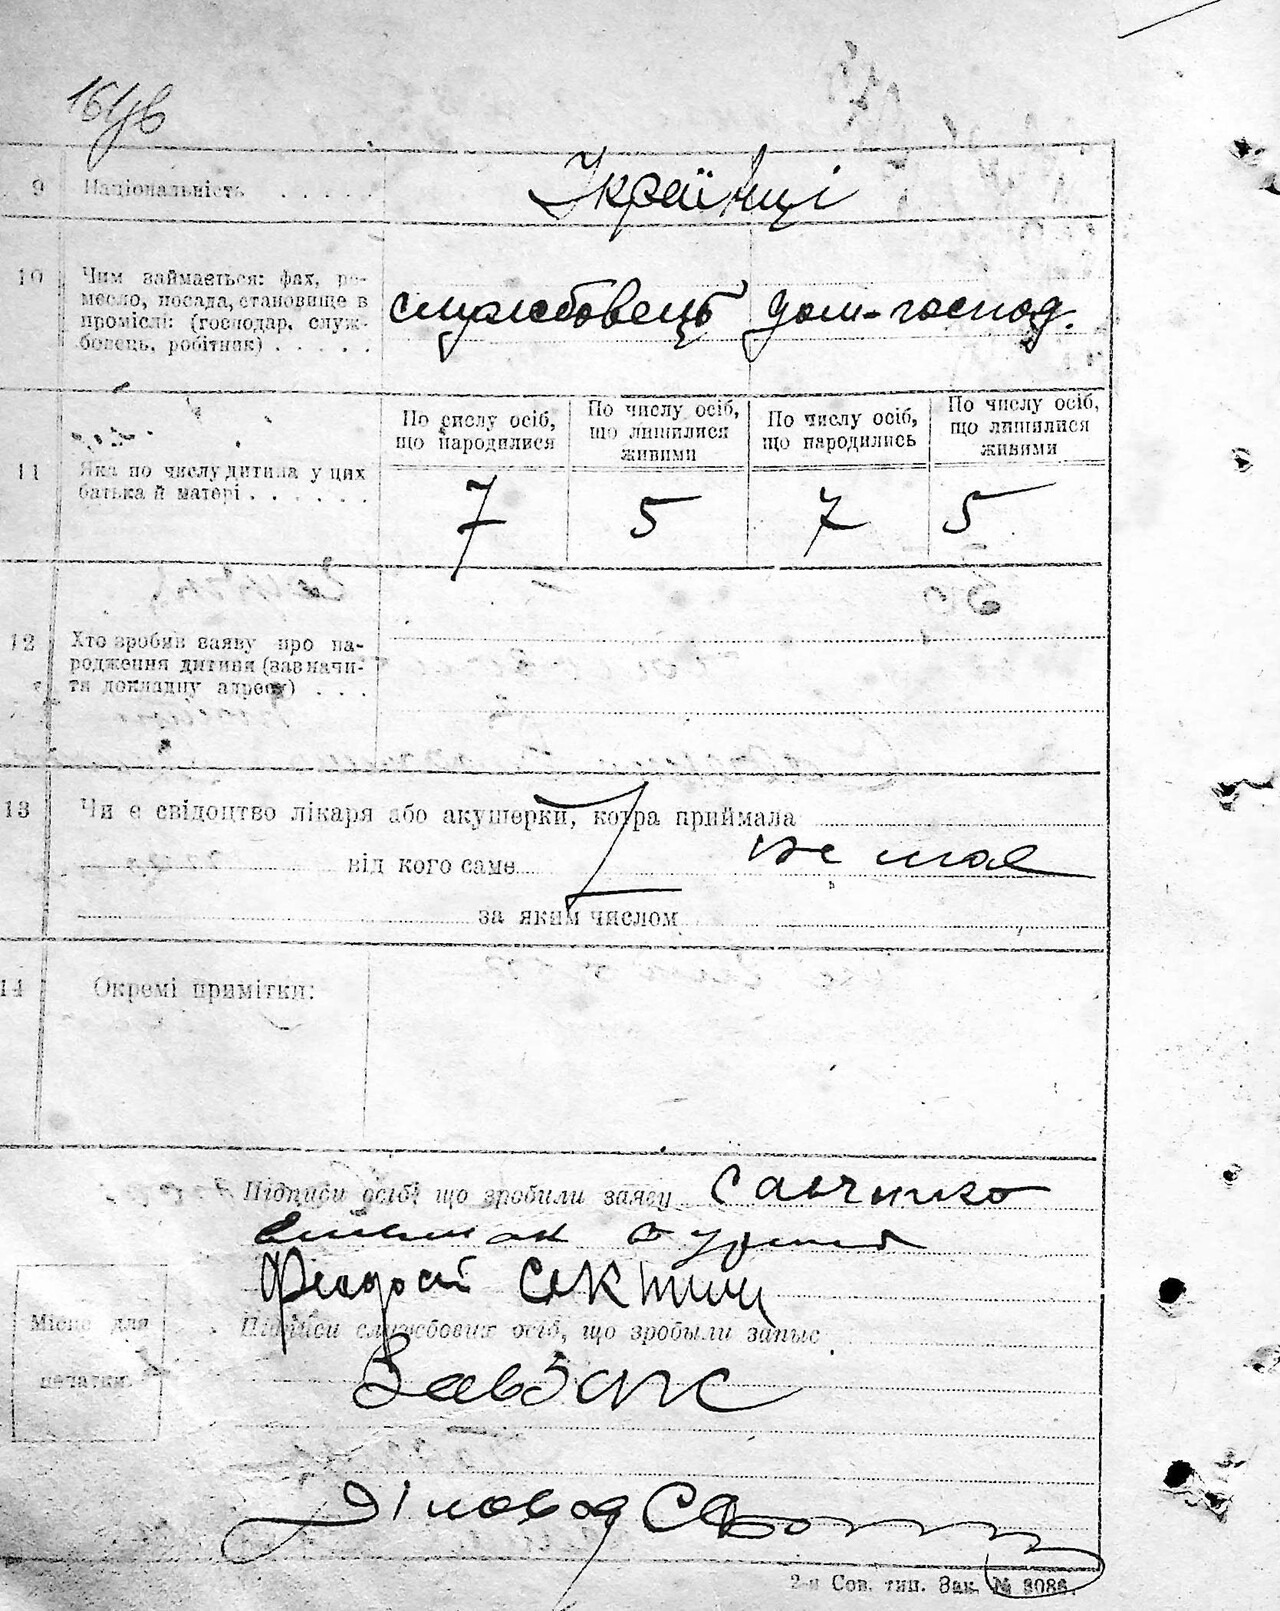 9 Національність . . . . . Українці
10 Чим займається: фах, ре-
месло, посада, становище в
проміслі: (господар, служ-
бовець, робітник) . . . . .
службовець дом-господ.
По числу осіб,
що народилися
По числу осіб,
що лишилися
живими
По числу осіб,
що народились
По числу осіб,
що лишилися
живими
11 Яка по числу дитина у цих
батька й матері . . . . . .
7 5 7 5
12 Хто зробив заяву про на-
родження дитини (зазначи-
ти докладну адресу) . . .
13 Чи є свідоцтво лікаря або акушерки, котра приймала
від кого саме не має
за яким числом
14 Окремі примітки:
Підписи осіб, що зробили заяву Савченко
Феодосій
Місце для
печатки.
Підписи службових осіб, що зробыли запыс
ЗавЗагс
Діловод
2-я Сов. тип. Зак. № 3086.